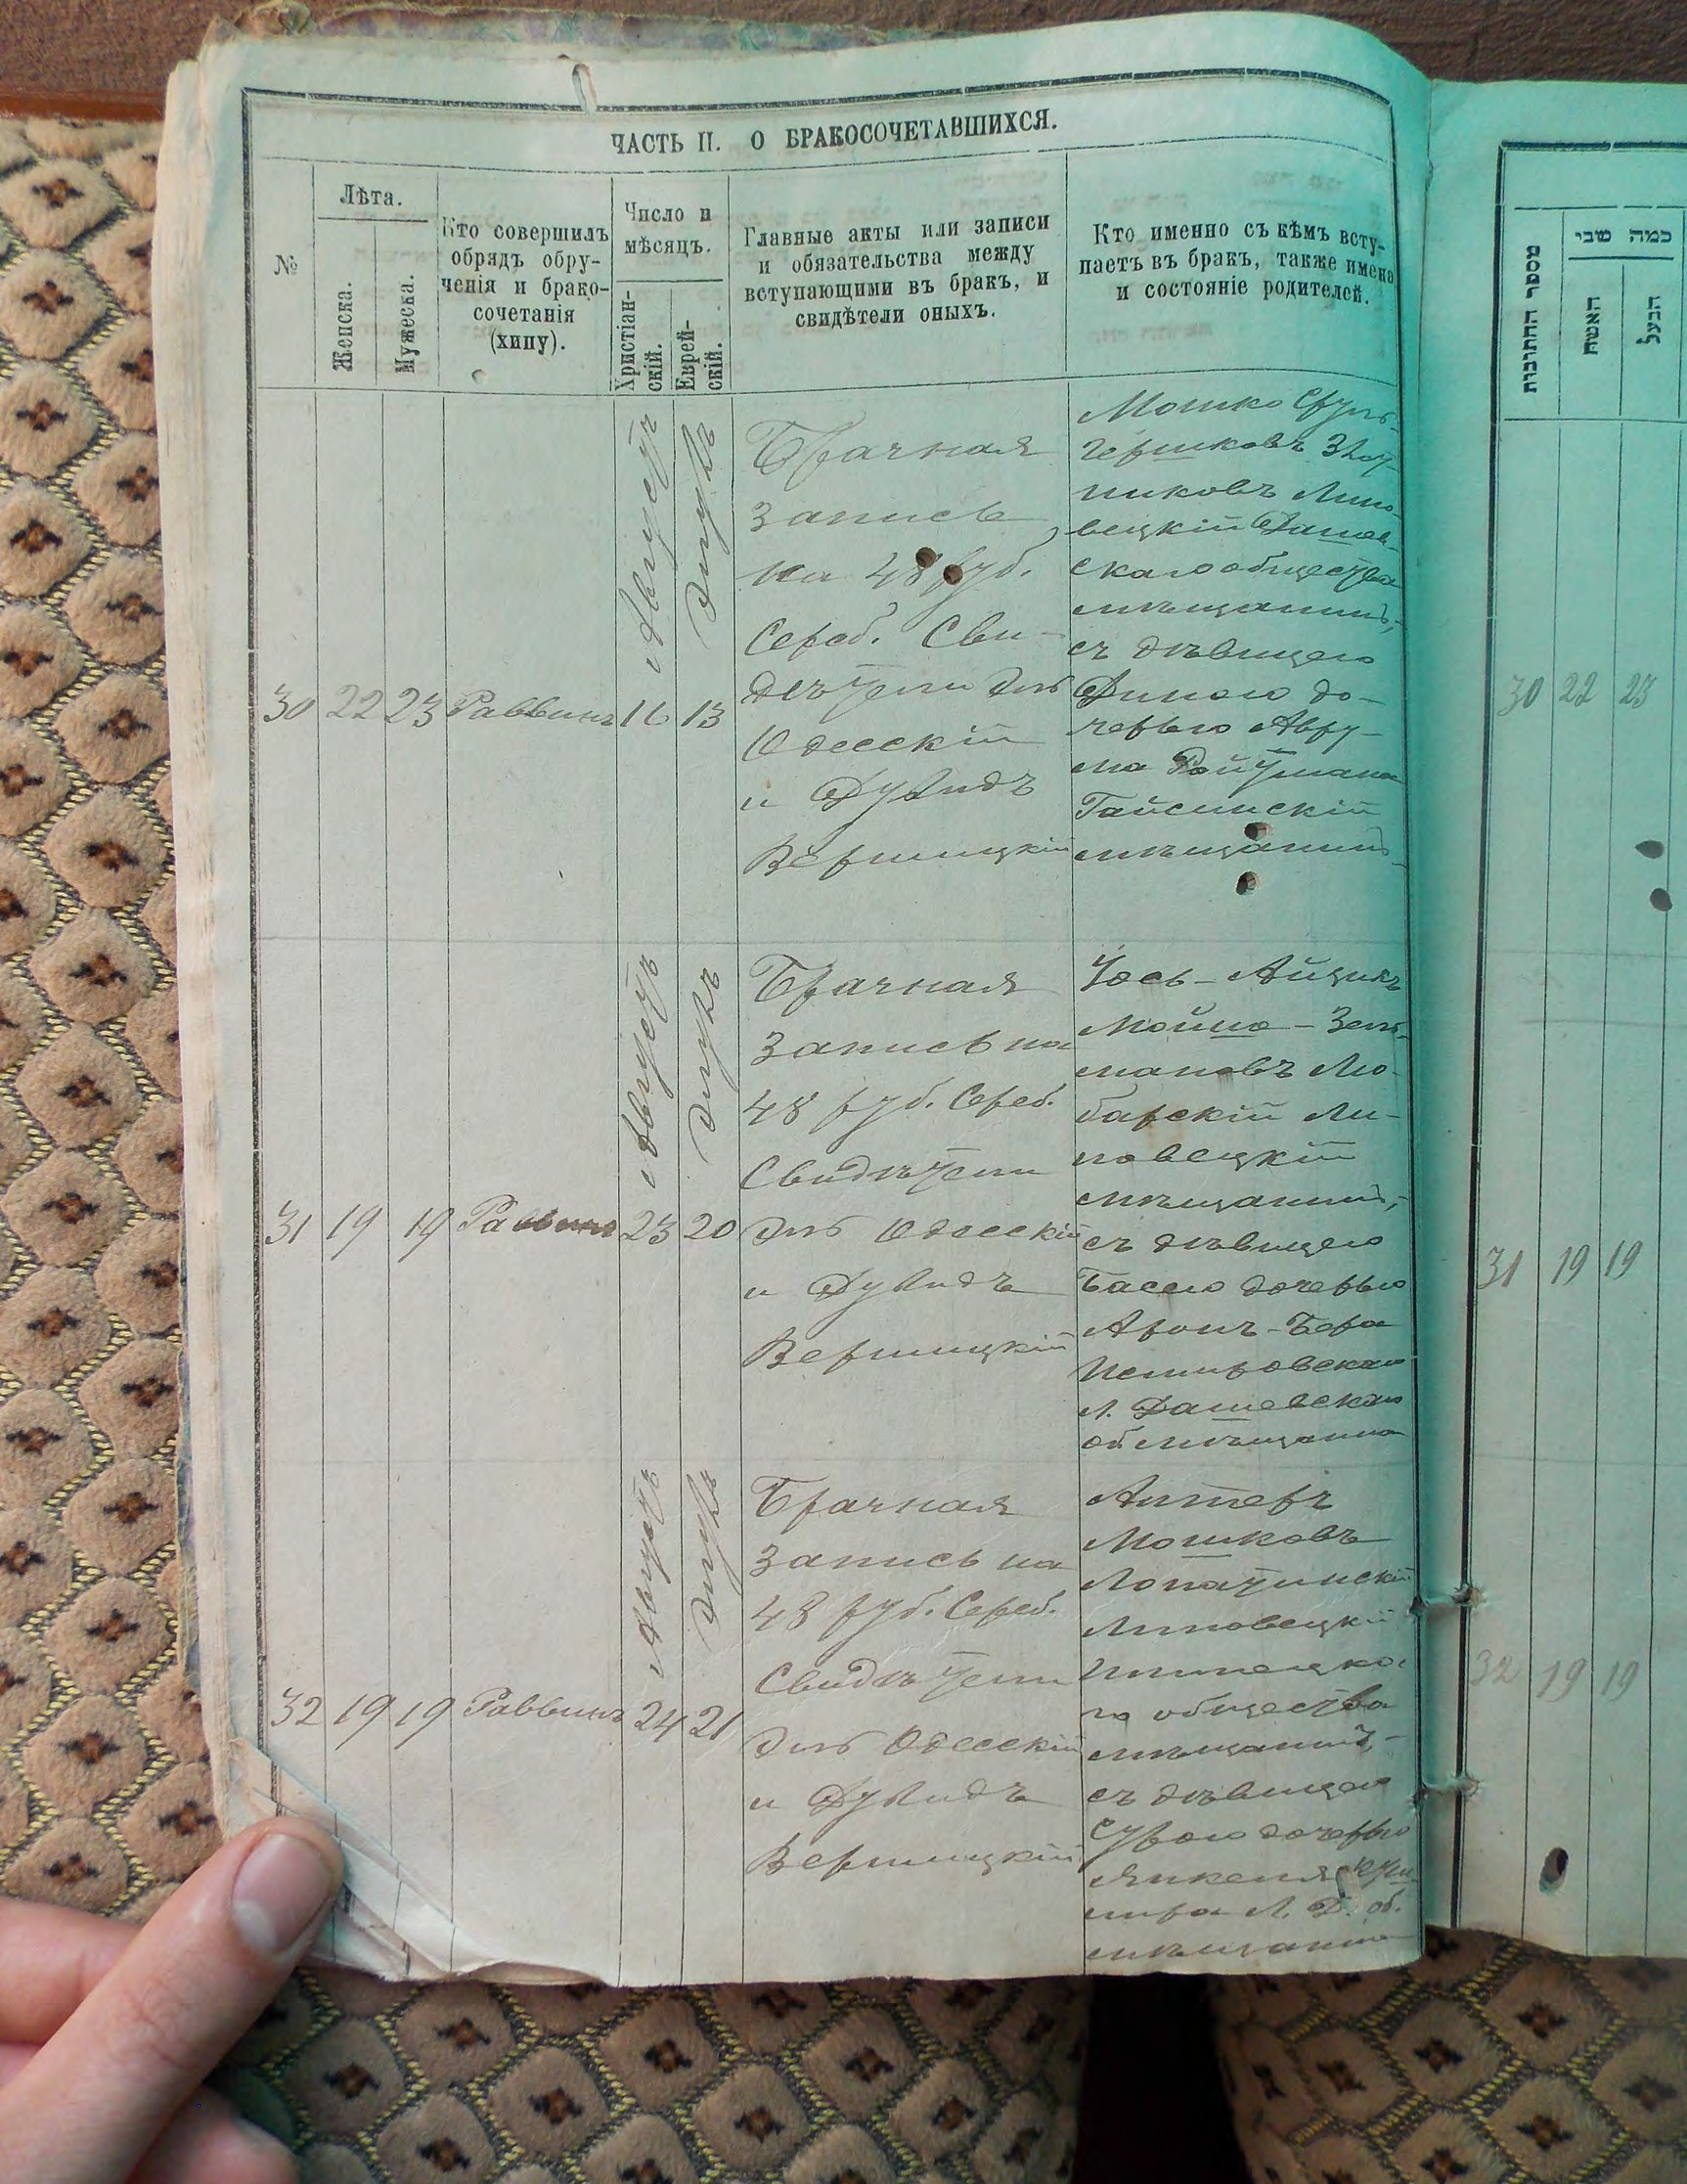 ЧАСТЬ II. О БРАКОСОЧЕТАВШИХСЯ.
№
Лѣта.
Женска.
Мужеска.
Кто совершилъ
обрядъ обру-
ченія и брако-
сочетанія
(хипу).
Число и
мѣсяцъ.
Христіан-
скій.
Еврей-
скій.
Главные акты или записи
и обязательства между
вступающими въ бракъ, и
свидѣтели оныхъ.
Кто именно съ кѣмъ всту-
паетъ въ бракъ, также имена
и состояніе родителей.
30
22
23
Раввинъ
Августъ
16
Элулъ
13
Брачная
запись
на 48 руб.
Сереб. Сви-
дѣтели Эль
Одесскій
и Дувидъ
Верницкій
Мошко Сруль
Гершковъ
никовъ Липо-
вецкій Дашев-
скаго общества
мѣщанинъ,
съ дѣвицею
Диною до-
черью Авру-
ма Ройтмана
Гайсинскій
мѣщанинъ
31
19
19
Раввинъ
Августъ
23
Элулъ
20
Брачная
Запись на
48 руб. Сереб.
Свидѣтели
Эль Одесскій
и Дувидъ
Верницкій
Іось-Айзикъ
Мойше-Зель-
мановъ Лю-
барскій Ли-
повецкій
мѣщанинъ,
съ дѣвицею
Басею дочерью
Аронъ-Бера
Немировскаго
Л. Дашевскаго
об мѣщанина
32
19
19
Раввинъ
Августъ
24
Элулъ
21
Брачная
Запись на
48 руб. Сереб.
Свидѣтели
Эль Одесскій
и Дувидъ
Верницкій
Алтеръ
Мошковъ
Лопатинскій
Липовецкій
Илинецка-
го общества
мѣщанинъ,
съ дѣвицею
Сурою дочерью
Янкеля
Л. Д. об.
мѣщанина
מספר החתונות
כמה שני
האשה
הבעל
30
22
23
31
19
19
32
19
19